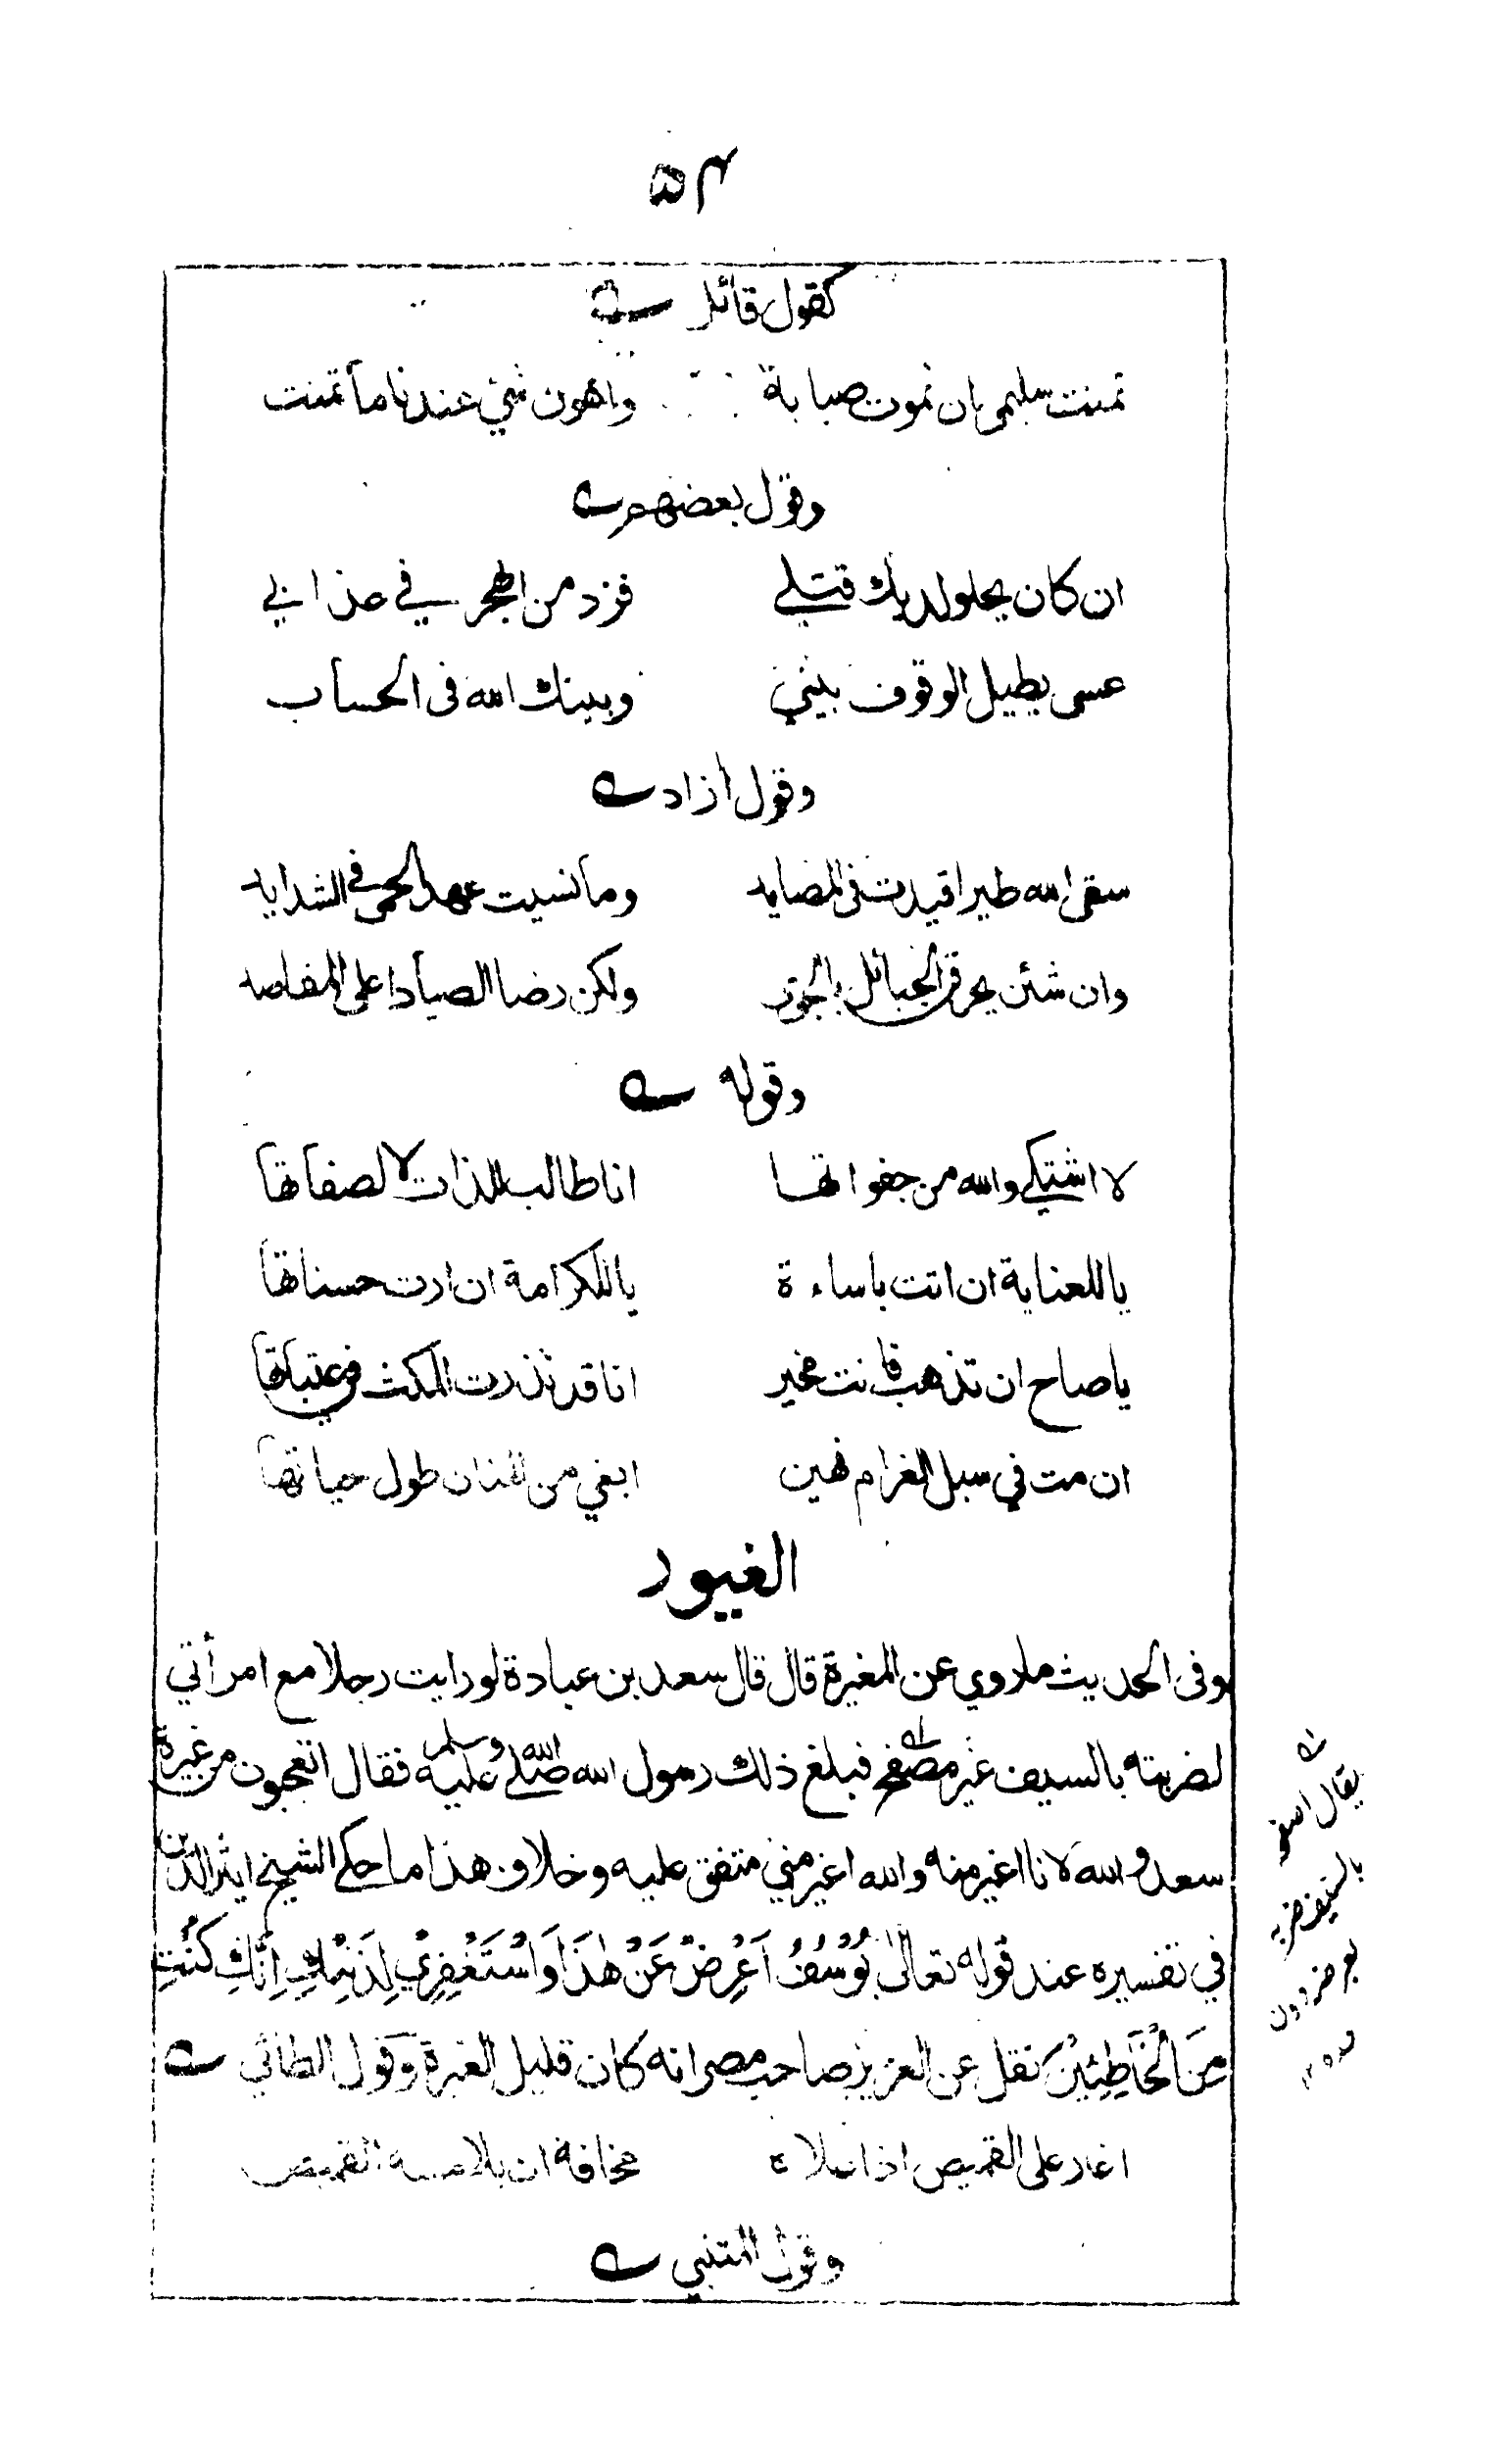 ۵۴
كقول قائل
تمنت سليمى بان نموت صبابة واهون شئ عندنا ما تمنت
وقول بعضهم
ان كان يحلو لديك قتلي فزد من الهجر في عذابي
عسى يطيل الوقوف بيني وبينك الله فى الحساب
وقول ازاد
سقى الله طيرا قيدت فى المصايد وما نسيت عهد الحمى فى الشدايد
وان شئن يحرقن الحبائل بالجوى ولكن رضا الصياد اعلى المقاصد
وقوله
لا اشتكي والله من جفواتها انا طالب للذات لا لصفاتها
يا للعناية ان اتت باساءة يا للكرامة ان ارت حسناتها
يا صاح ان تذهب فانت مخير انا قد نذرت المكث فى عتباتها
ان مت في سبل الغرام فهين ابغي من المنان طول حياتها
الغيور
وفى الحديث ما روي عن المغيرة قال قال سعد بن عبادة لو رايت رجلا مع امرأتي
لضربته بالسيف غير مصفح فبلغ ذلك رسول الله صلى الله عليه وسلم فقال اتعجبون من غيرة
سعد والله لانا اغير منه والله اغير مني متفق عليه وخلاف هذا ما حكى الشيخ اثير الدين
في تفسيره عند قوله تعالى يُوْسُفُ اَعْرِضْ عَنْ هٰذَا وَاسْتَغْفِرِيْ لِذَنْبِكِ اِنَّكِ كُنْتِ
مِنَ الْخَاطِئِيْنَ نقل عن العزيز صاحب مصر انه كان قليل الغيرة وقول الطائي
اغار على القميص اذا علاه مخافة ان يلامسه القميص
وقول المتنبي
يقال اصفح
بالسيف ضربه
بعرضه دون
حده ١٢